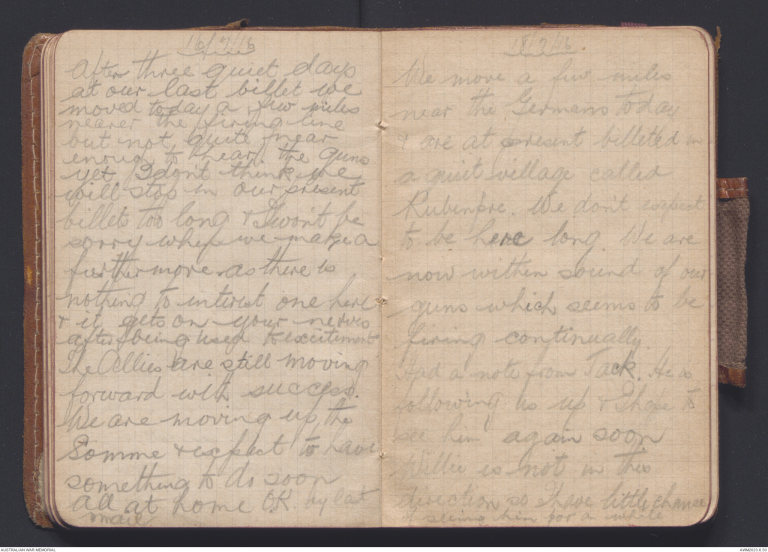 16/7/16
After three quiet days
at our last billet we
moved today a few miles
nearer the firing line
but not quite near
enough to hear the guns
yet I dont think we
will stop in our present
billets too long & I wont be
sorry when we make a
further move as there is
nothing to interest one here
& it gets on your nerves
after being used to excitement
The Allies are still moving
forward with success.
We are moving up the
Somme & expect to have
something to do soon
All at home O.K. by last
mail
18/7/16.
We move a few miles
near the Germans today
& are at present billeted in
a quiet village called
Rubempre. We dont expect
to be here long. We are
now within sound of our
guns which seems to be
firing continually.
Had a note from Jack. He is
following us up & I hope to
see him again soon
Willie is not in this
direction so I have little chance
of seeing him for a while
AUSTRALIAN WAR MEMORIAL